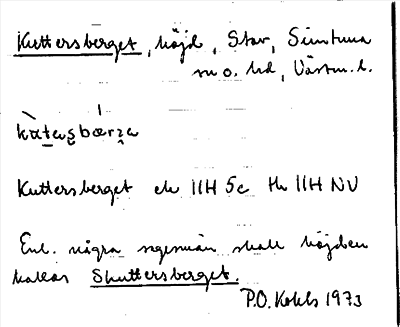 Kuttersberget, höjd, Stav, Simtuna
sn o. hd, Västm. l.
kàtaʂbærʒa
Kuttersberget ek 11H 5c tk 11H NV
Enl. några sagesmän skall höjden
kallas Skuttersberget.
P.O. Kohls 1973